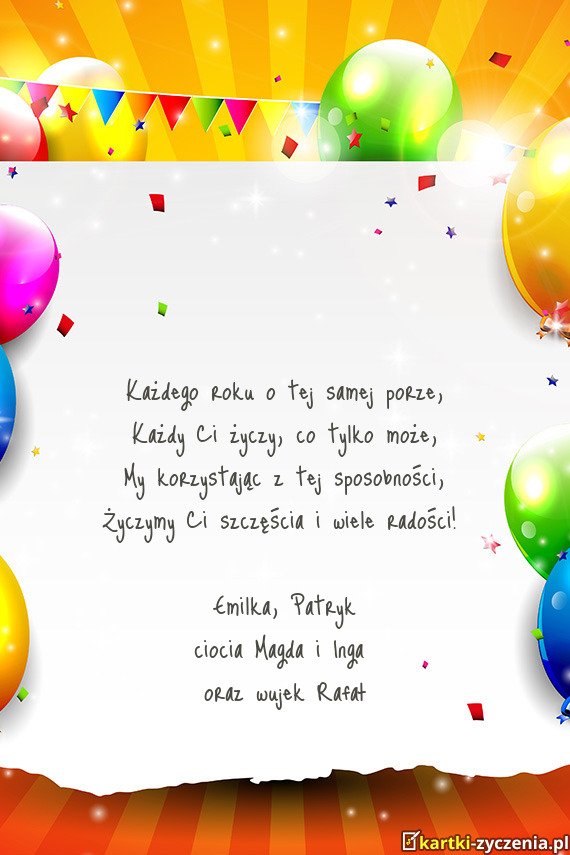 Każdego roku o tej samej porze,
Każdy Ci życzy, co tylko może,
My korzystając z tej sposobności,
Życzymy Ci szczęścia i wiele radości!
Emilka, Patryk
ciocia Magda i Inga
oraz wujek Rafał
kartki-zyczenia.pl